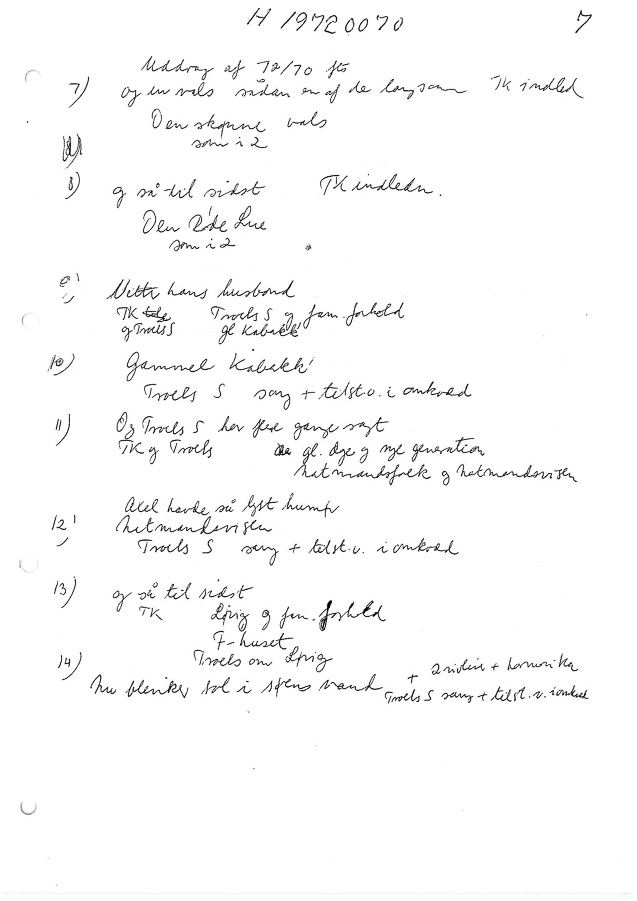 H 19720070 7
Uddrag af 72/70 fts
7) og en vals sådan en af de langsom TK indled
Den skønne vals
som i 2
8) og så til sidst TK indledn.
Den Røde Lue
som i 2
hans husbond
TK Troels S og fam. forhold
og Troels S gl Kabakk'
10) Gammel Kabakk'
Troels S sang + tilst.v. i omkvæd
11) Og Troels S har flere gange sagt
TK og Troels gl. dge og nye generation
natmandsfolk og natmandsvisen
Axel havde så lyst
12) natmandsvisen
Troels S sang + tilst.v. i omkvæd
13) og så til sidst
TK og fam. forhold
F-huset
Troels om
14) Nu blinker sol i søens vand + 2 violin + harmonika
Troels S sang + tilst.v. i omkvæd